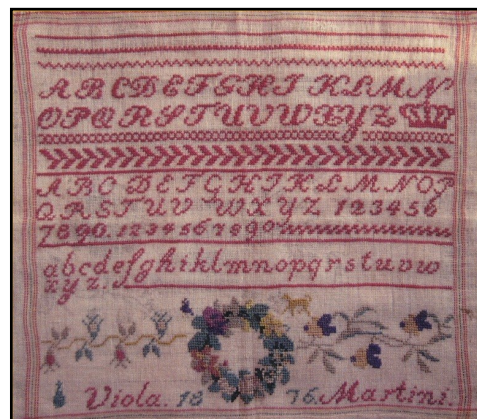 ABCDEFGHIKLMN
OPQRSTUVWXYZ
ABCDEFGHIKLMNOP
QRSTUVWXYZ 123456
7890.1234567890
abcdefghiklmnopqrstuvw
xyz.
Viola. 18 76. Martini.